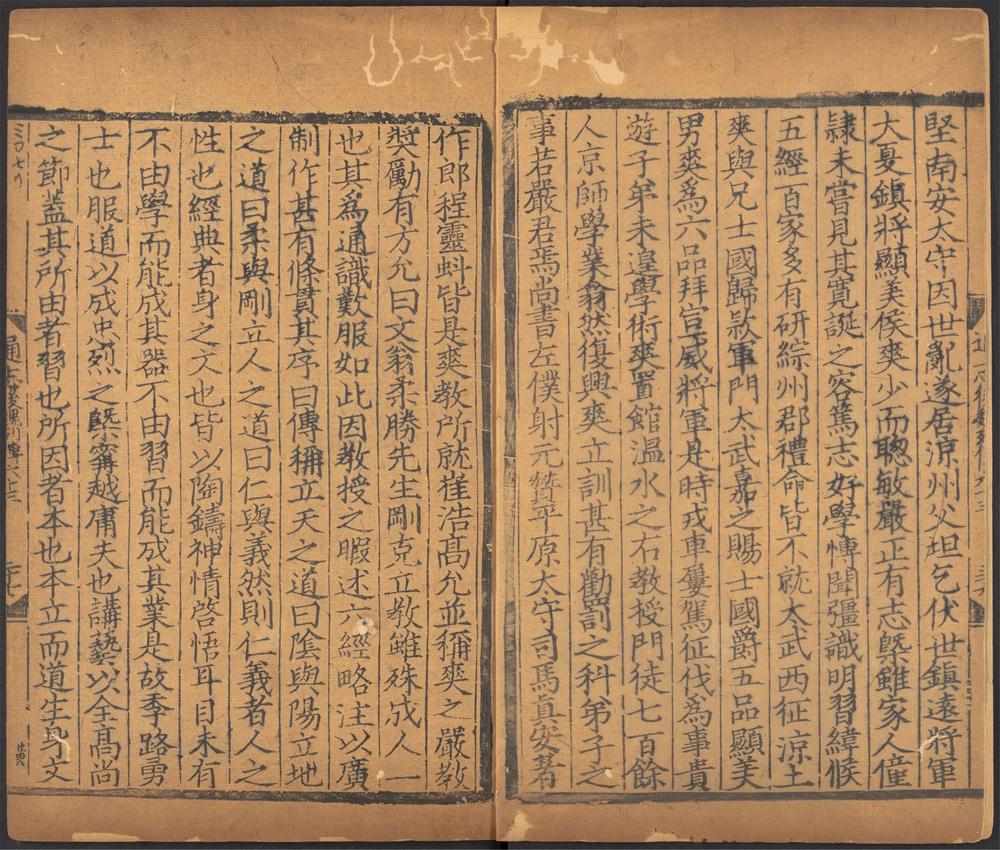 堅南安太守因世亂遂居涼州父坦乞伏世鎮遠將軍
大夏鎮將顯美侯爽少而聰敏嚴正有志槩雖家人僮
隷未嘗見其寬誕之容篤志好學博聞彊識明習緯候
五經百家多有研綜州郡禮命皆不就太武西征涼土
爽與兄士國歸款軍門太武嘉之賜士國爵五品顯美
男爽爲六品拜宣威將軍是時戎車屢駕征伐爲事貴
遊子弟未遑學術爽置館温水之右教授門徒七百餘
人京師學業翕然復興爽立訓甚有勸罰之科弟子之
事若嚴君焉尚書左僕射元贊平原太守司馬眞安著
作郎程靈虯皆是爽教所就崔浩高允並稱爽之嚴教
奬勵有方允曰文翁柔勝先生剛克立教雖殊成人一
也其爲通識歎服如此因教授之暇述六經略注以廣
制作甚有條貫其序曰傳稱立天之道曰陰與陽立地
之道曰柔與剛立人之道曰仁與義然則仁義者人之
性也經典者身之文也皆以陶鑄神情啓悟耳目未有
不由學而能成其器不由習而能成其業是故季路勇
士也服道以成忠烈之槩甯越庸夫也講藝以全高尚
之節蓋其所由者習也所因者本也本立而道生身文